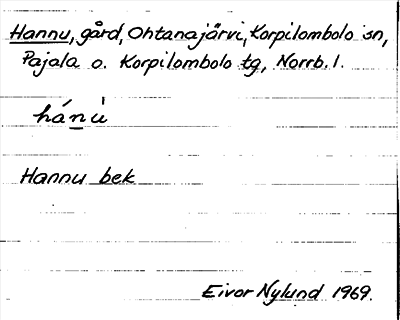 Hannu, gård, Ohtanajärvi, Korpilombolo sn,
Pajala o. Korpilombolo tg, Norrb. l.
hánù
Hannu bek
Eivor Nylund 1969.